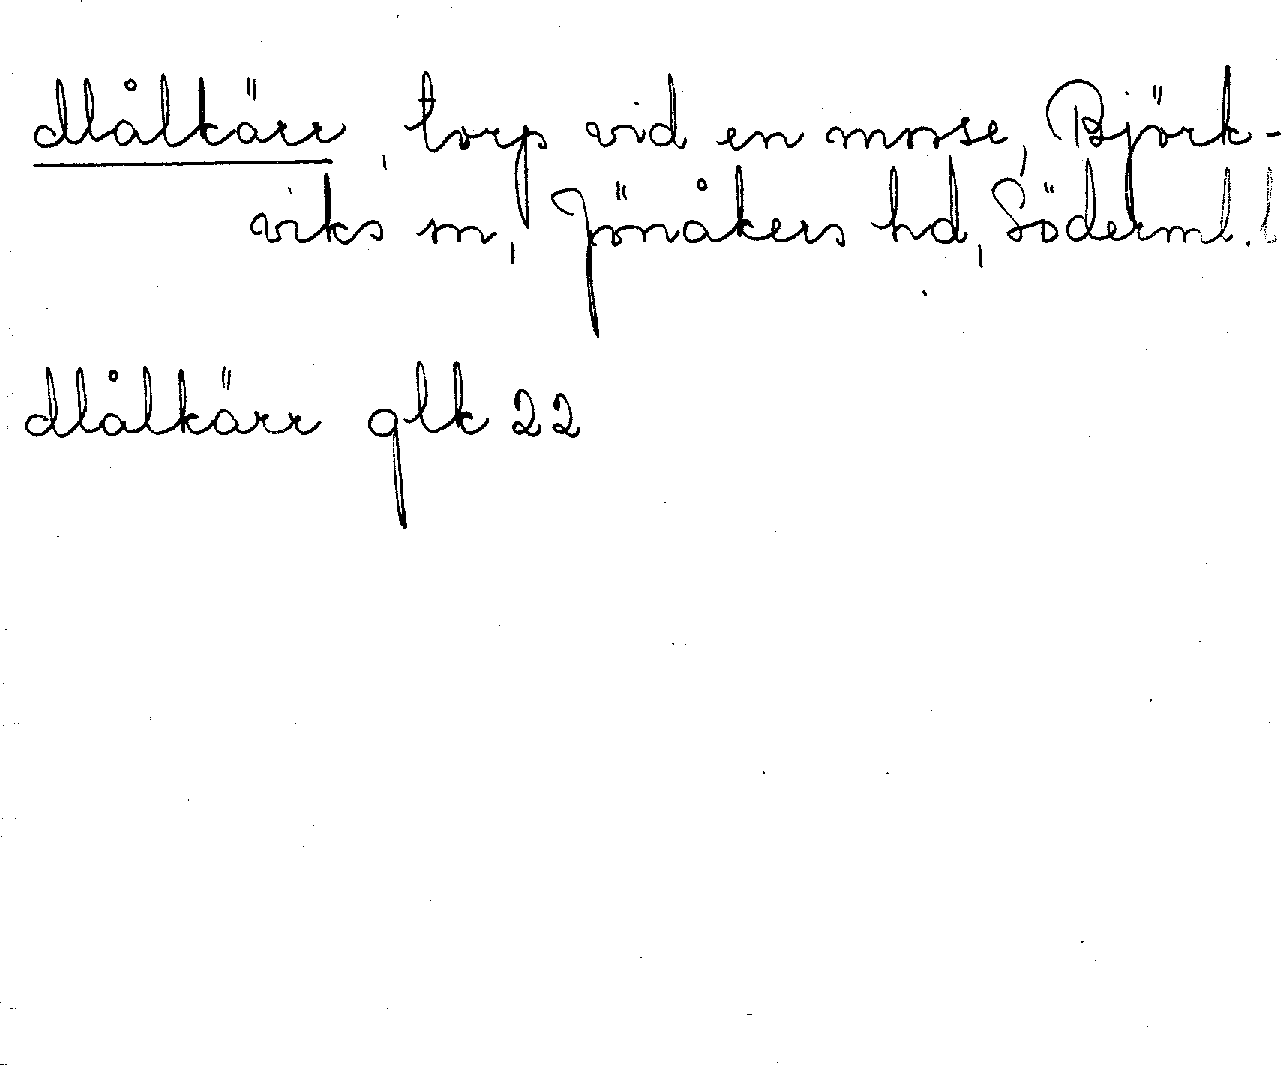 Målkärr, torp vid en mosse, Björk-
viks sn, Jönåkers hd, Söderml. l
Målkärr glk 22